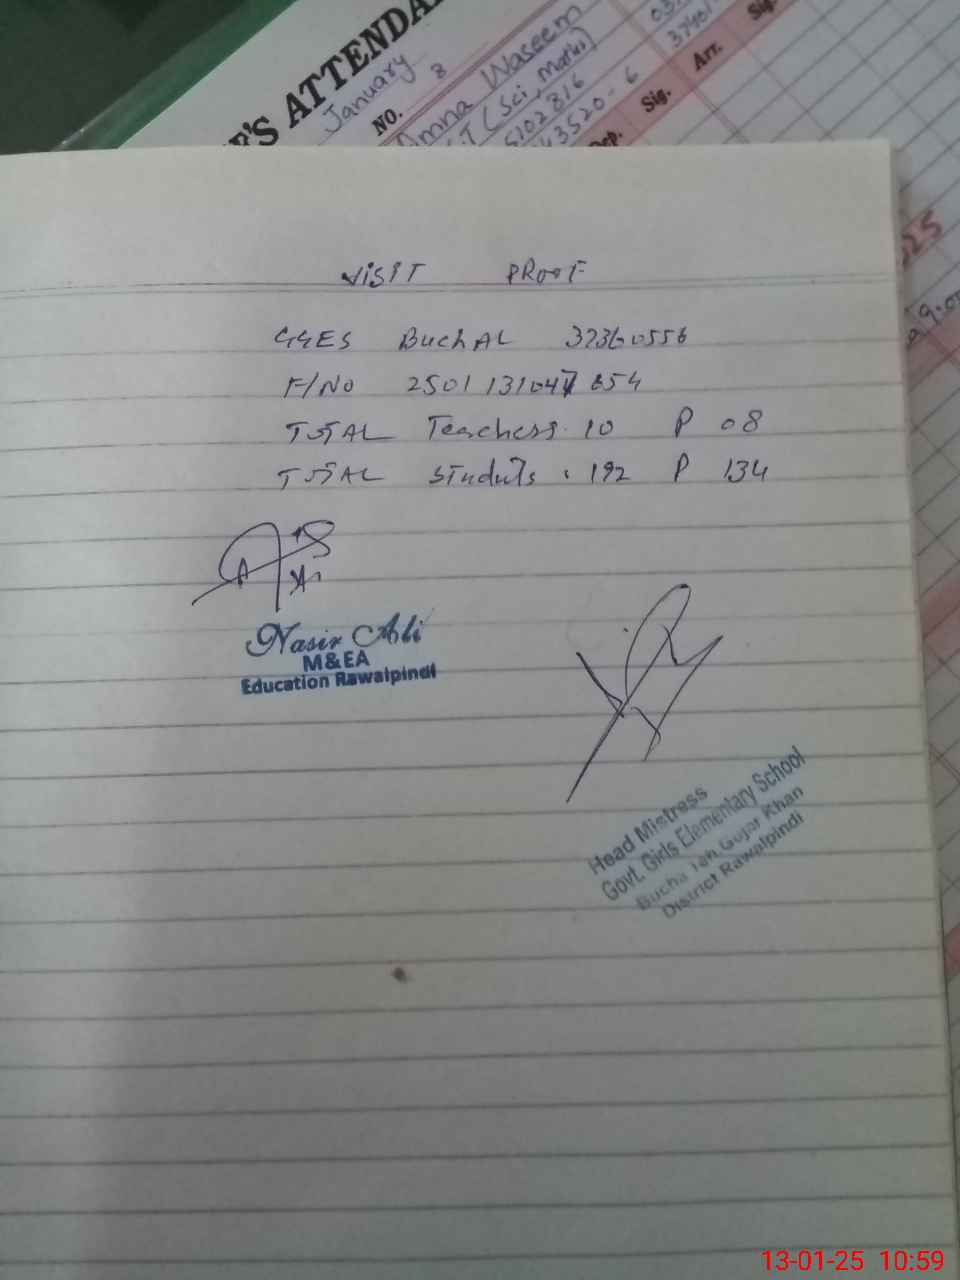 E'S ATTENDA
January
NO. 8
Amna Waseem
S.T (Sci, maths)
5102816
43520-6
Dep. Sig. Arr. Sig.
37401
VISIT PROOF
GGES BuchAL 37360556
F/No 2501131047654
TOTAL Teachers. 10 P 08
TOTAL Students. 192 P 134
Nasir Ali
M&EA
Education Rawalpindi
Head Mistress
Govt. Girls Elementary School
Bucha Teh. Gujar Khan
District Rawalpindi
13-01-25 10:59